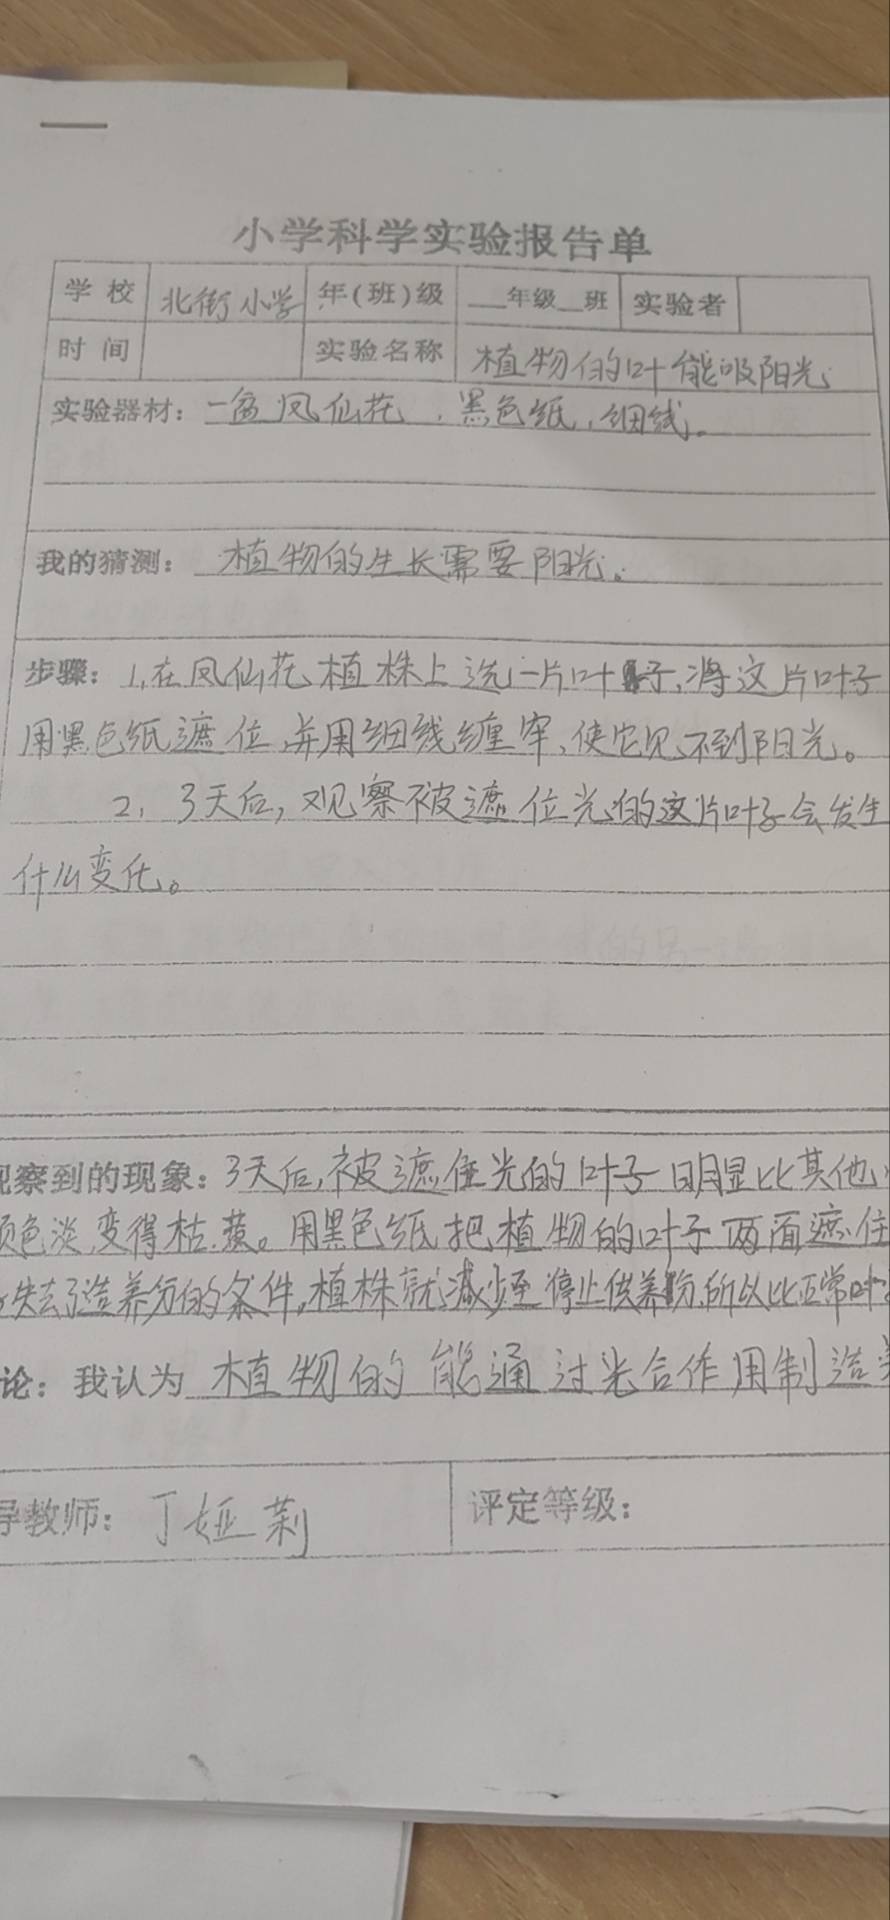 小学科学实验报告单
学校 北街小学 年(班)级 __年级__班 实验者
时间 实验名称 植物的叶能吸阳光
实验器材：一盆凤仙花，黑色纸，细线。
我的猜测：植物的生长需要阳光。
步骤：1,在凤仙花植株上选一片叶子,将这片叶子
用黑色纸遮位,并用细线缠牢,使它见不到阳光。
2, 3天后,观察被遮位光的这片叶子会发生
什么变化。
观察到的现象：3天后,被遮住光的叶子明显比其他
颜色淡,变得枯.黄。用黑色纸把植物的叶子两面遮住
失去了造养分的条件,植株就减少至停止供养份,所以比正常叶
论：我认为 植物的能通过光合作用制造
导教师：丁娅莉 评定等级：